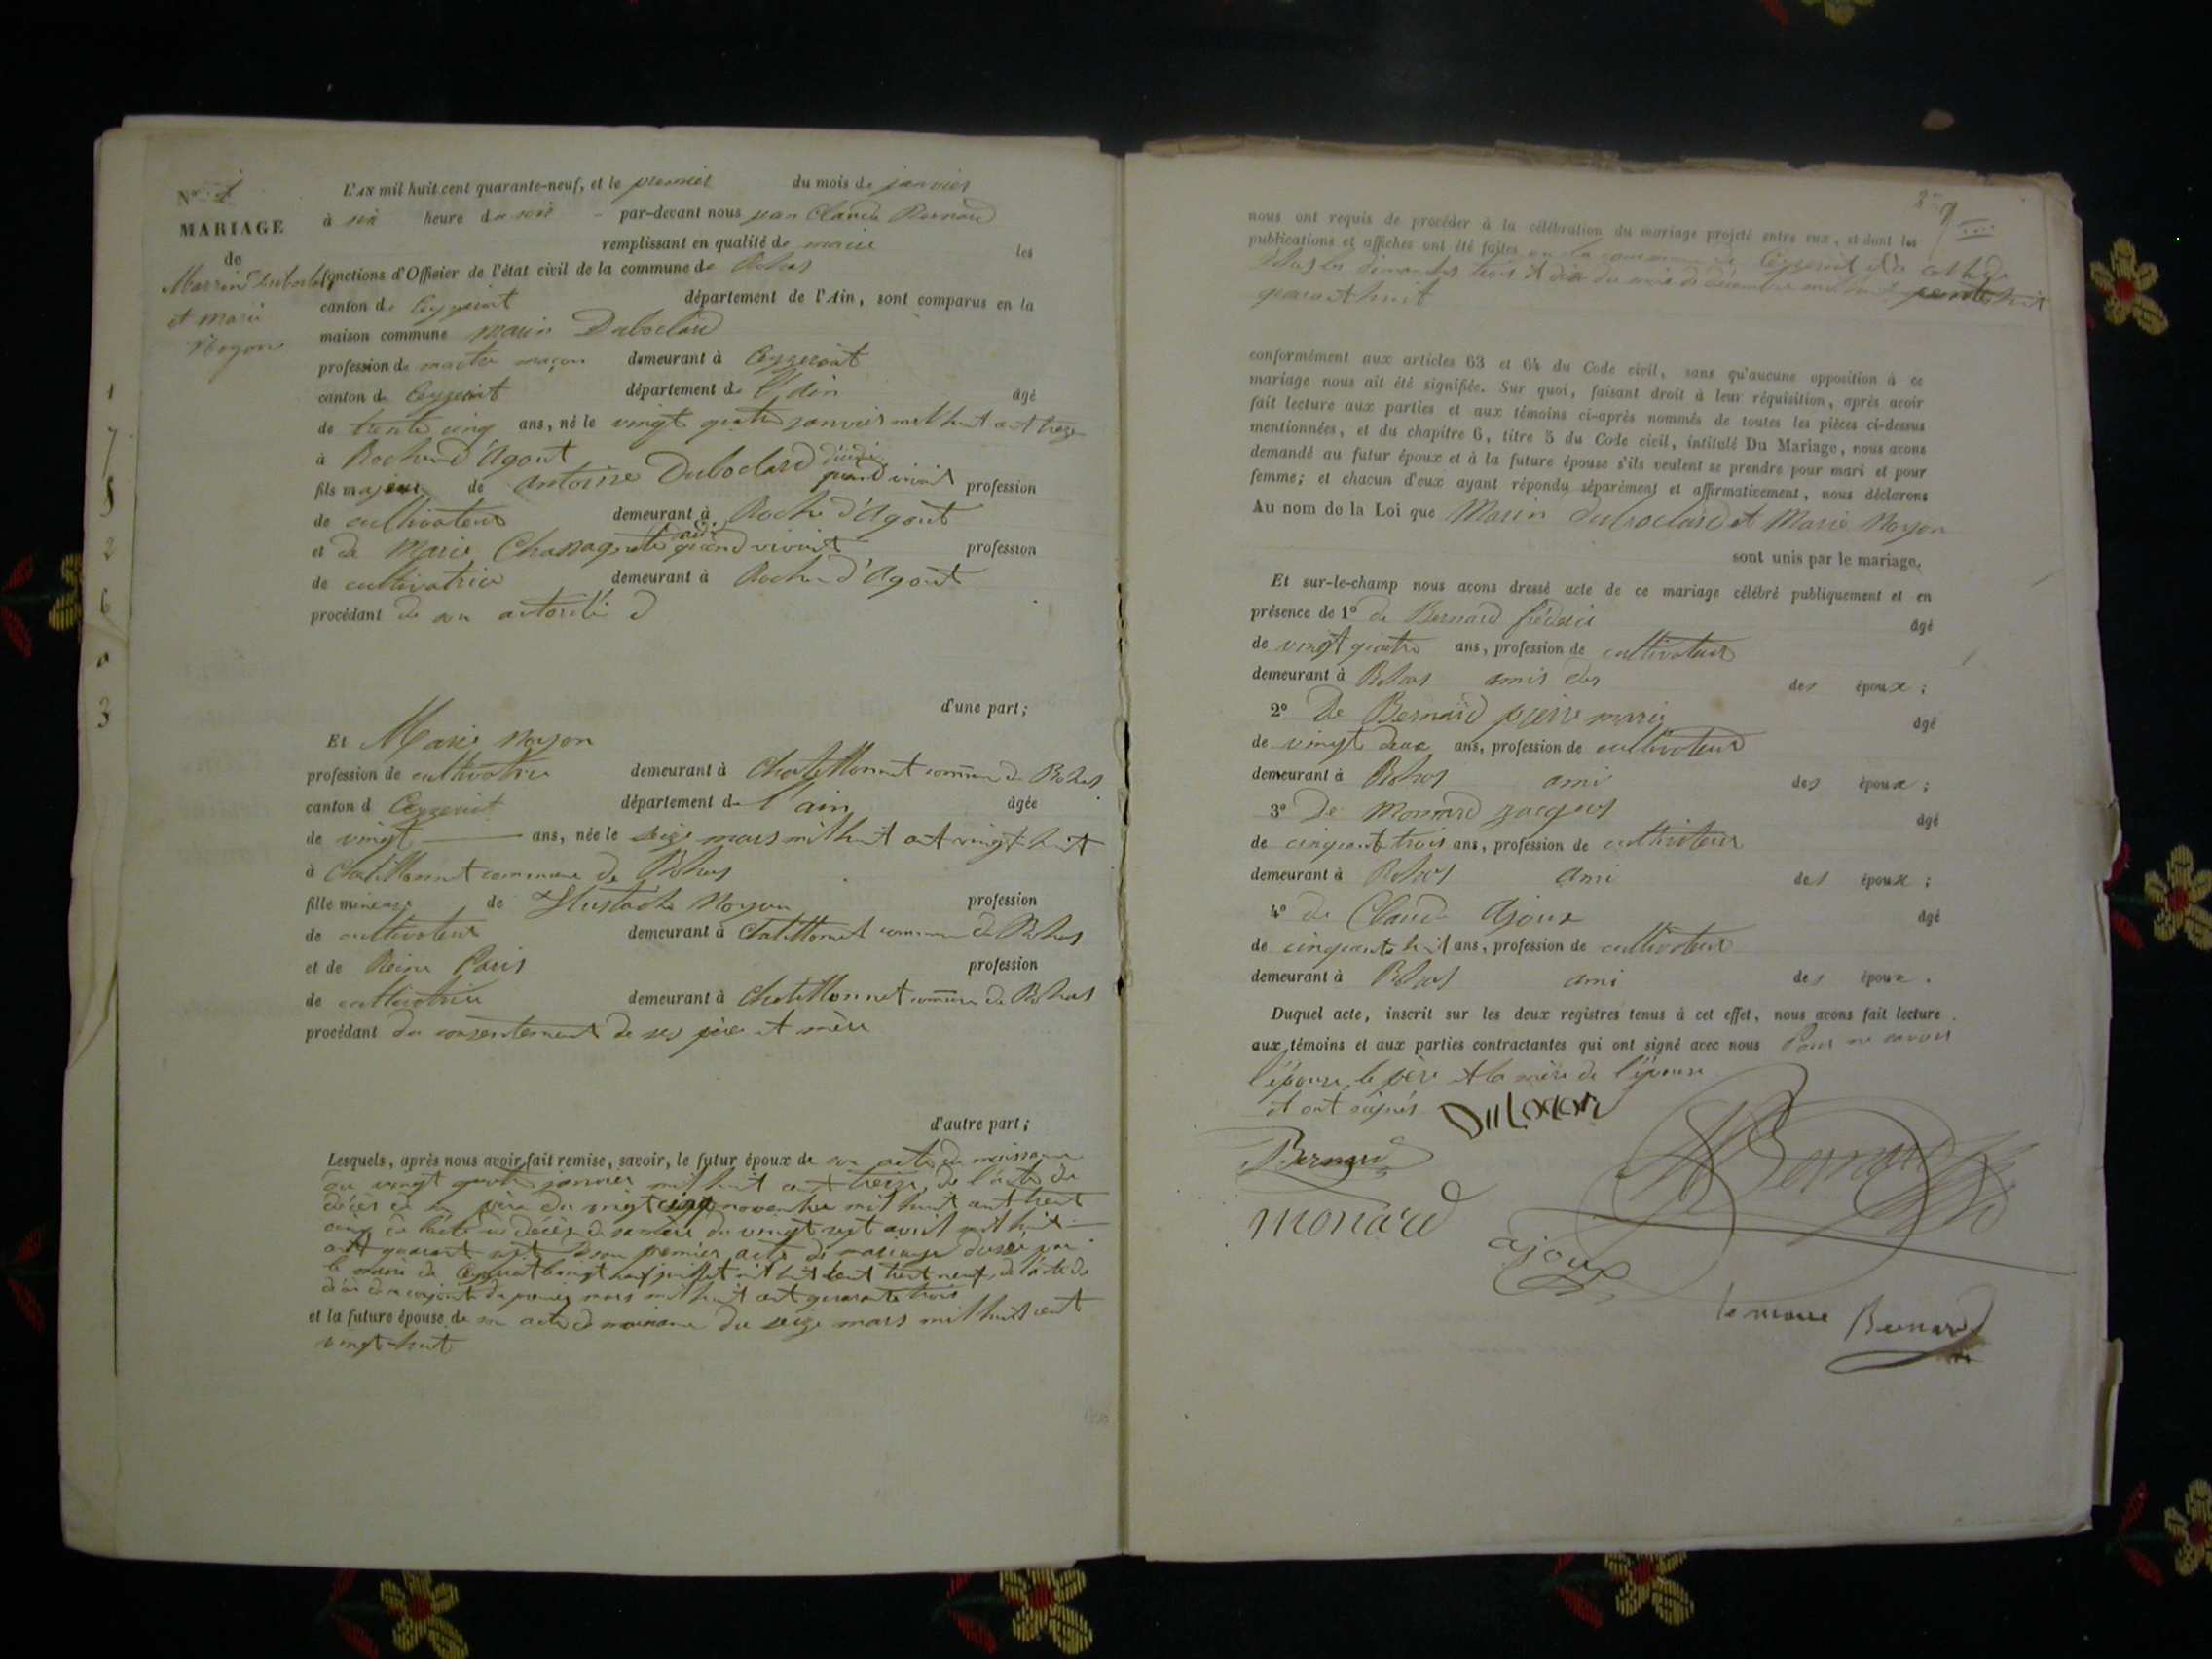 N° 1
MARIAGE
de
et marie
Noyon
1
7
8
2
6
0
3
L'AN mil huit cent quarante-neuf, et le premier du mois de janvier
à six heure du soir par-devant nous jean Claude Bernard
remplissant en qualité de maire les
fonctions d'Officier de l'état civil de la commune de Bohas
canton de Ceyzeriat département de l'Ain, sont comparus en la
maison commune marin Duboclard
profession de maitre maçon demeurant à Ceyzeriat
canton de Ceyzeriat département de l'Ain âgé
de trente cinq ans, né le vingt quatre janvier mil huit cent treize
à Roche d'Agout
fils majeur de antoine Duboclard décédé quand vivait profession
de cultivateur demeurant à Roche d'Agout
et de Marie quand vivait profession
de cultivatrice demeurant à Roche d'Agout
procédant de son autorité
d'une part;
Et Marie Noyon
profession de cultivatrice demeurant à Chatillonnet commune de Bohas
canton d Ceyzeriat département de l'ain âgée
de vingt ans, née le seize mars mil huit cent vingt-huit
à Chatillonnet commune de Bohas
fille mineure de Noyon profession
de cultivateur demeurant à Chatillonnet commune de Bohas
et de Reine Paris profession
de cultivatrice demeurant à Chatillonnet commune de Bohas
procédant du consentement de ses père et mère
d'autre part;
Lesquels, après nous avoir fait remise, savoir, le futur époux de son acte de naissance
du vingt quatre janvier mil huit cent treize, de l'acte de
décès de son père du vingt cinq novembre mil huit cent trente
cinq de l'acte de décès de sa mère du vingt sept avril mil huit
cent quarante sept de son premier acte de mariage dressé par
le maire de Ceyzeriat le vingt neuf juillet mil huit cent trente neuf, de l'acte de
décès de sa conjointe du premier mars mil huit cent quarante trois
et la future épouse de son acte de naissance du seize mars mil huit cent
vingt-huit
nous ont requis de procéder à la célébration du mariage projeté entre eux, et dont les
publications et affiches ont été faites en la commune de Ceyzeriat et à celle de
Bohas les dimanches trois et dix du mois de décembre mil huit
quarant huit
conformément aux articles 63 et 64 du Code civil, sans qu'aucune opposition à ce
mariage nous ait été signifiée. Sur quoi, faisant droit à leur réquisition, après avoir
fait lecture aux parties et aux témoins ci-après nommés de toutes les pièces ci-dessus
mentionnées, et du chapitre 6, titre 5 du Code civil, intitulé Du Mariage, nous avons
demandé au futur époux et à la future épouse s'ils veulent se prendre pour mari et pour
femme; et chacun d'eux ayant répondu séparément et affirmativement, nous déclarons
Au nom de la Loi que Marin duboclard et Marie Noyon
sont unis par le mariage.
Et sur-le-champ nous avons dressé acte de ce mariage célébré publiquement et en
présence de 1° de Bernard fréderic âgé
de vingt quatre ans, profession de cultivateur
demeurant à Bohas amis des des époux;
2° De Bernard pierre marie âgé
de vingt deux ans, profession de cultivateur
demeurant à Bohas ami des époux;
3° De Monard jacques âgé
de cinquante trois ans, profession de cultivateur
demeurant à Bohas ami des époux;
4° de Claude Ajoux âgé
de cinquante huit ans, profession de cultivateur
demeurant à Bohas ami des époux.
Duquel acte, inscrit sur les deux registres tenus à cet effet, nous avons fait lecture
aux témoins et aux parties contractantes qui ont signé avec nous Pour ne savoir
l'épouse le père et la mère de l'épouse
et ont signés
Bernard
Bernard
monard
ajoux
le maire Bernard